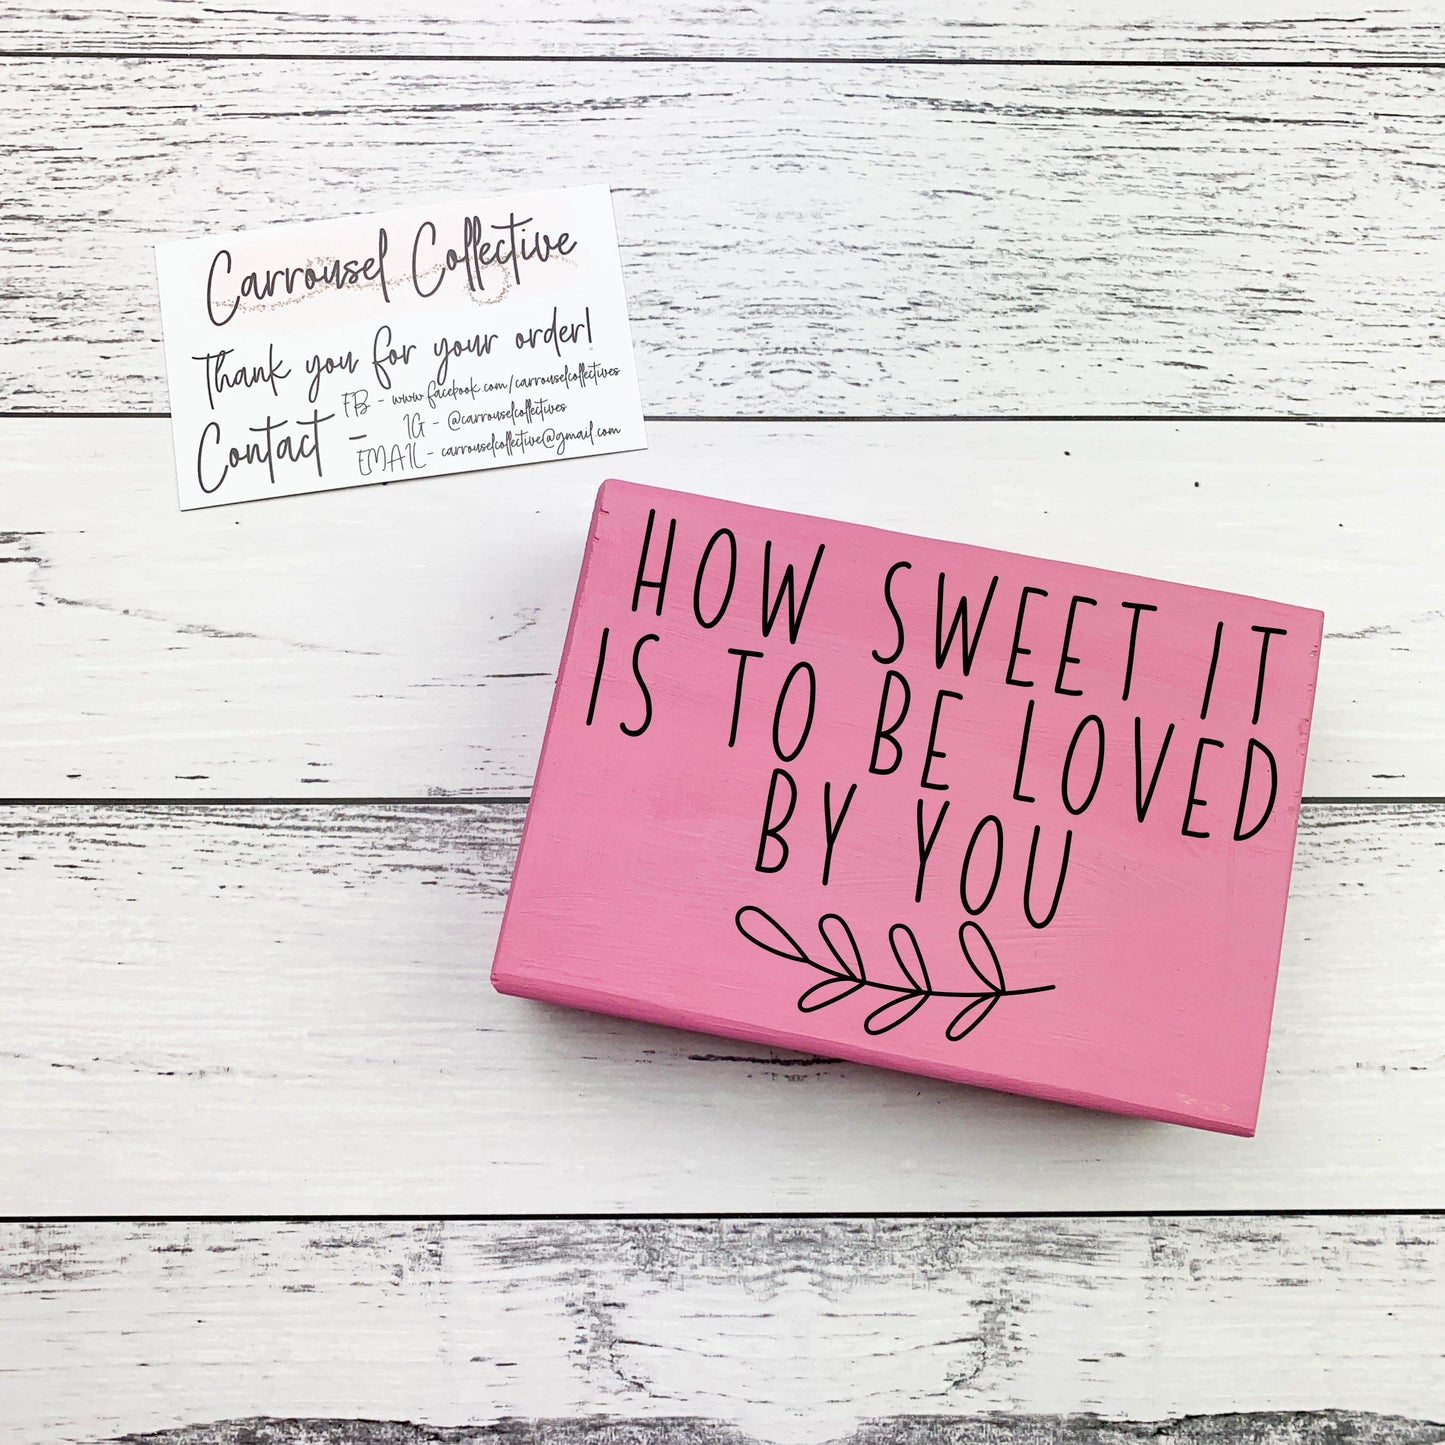 Carrousel Collective
Thank you for your order!
Contact -
FB - www.facebook.com/carrouselcollectives
IG - @carrouselcollectives
EMAIL - carrouselcollective@gmail.com
HOW SWEET IT
IS TO BE LOVED
BY YOU